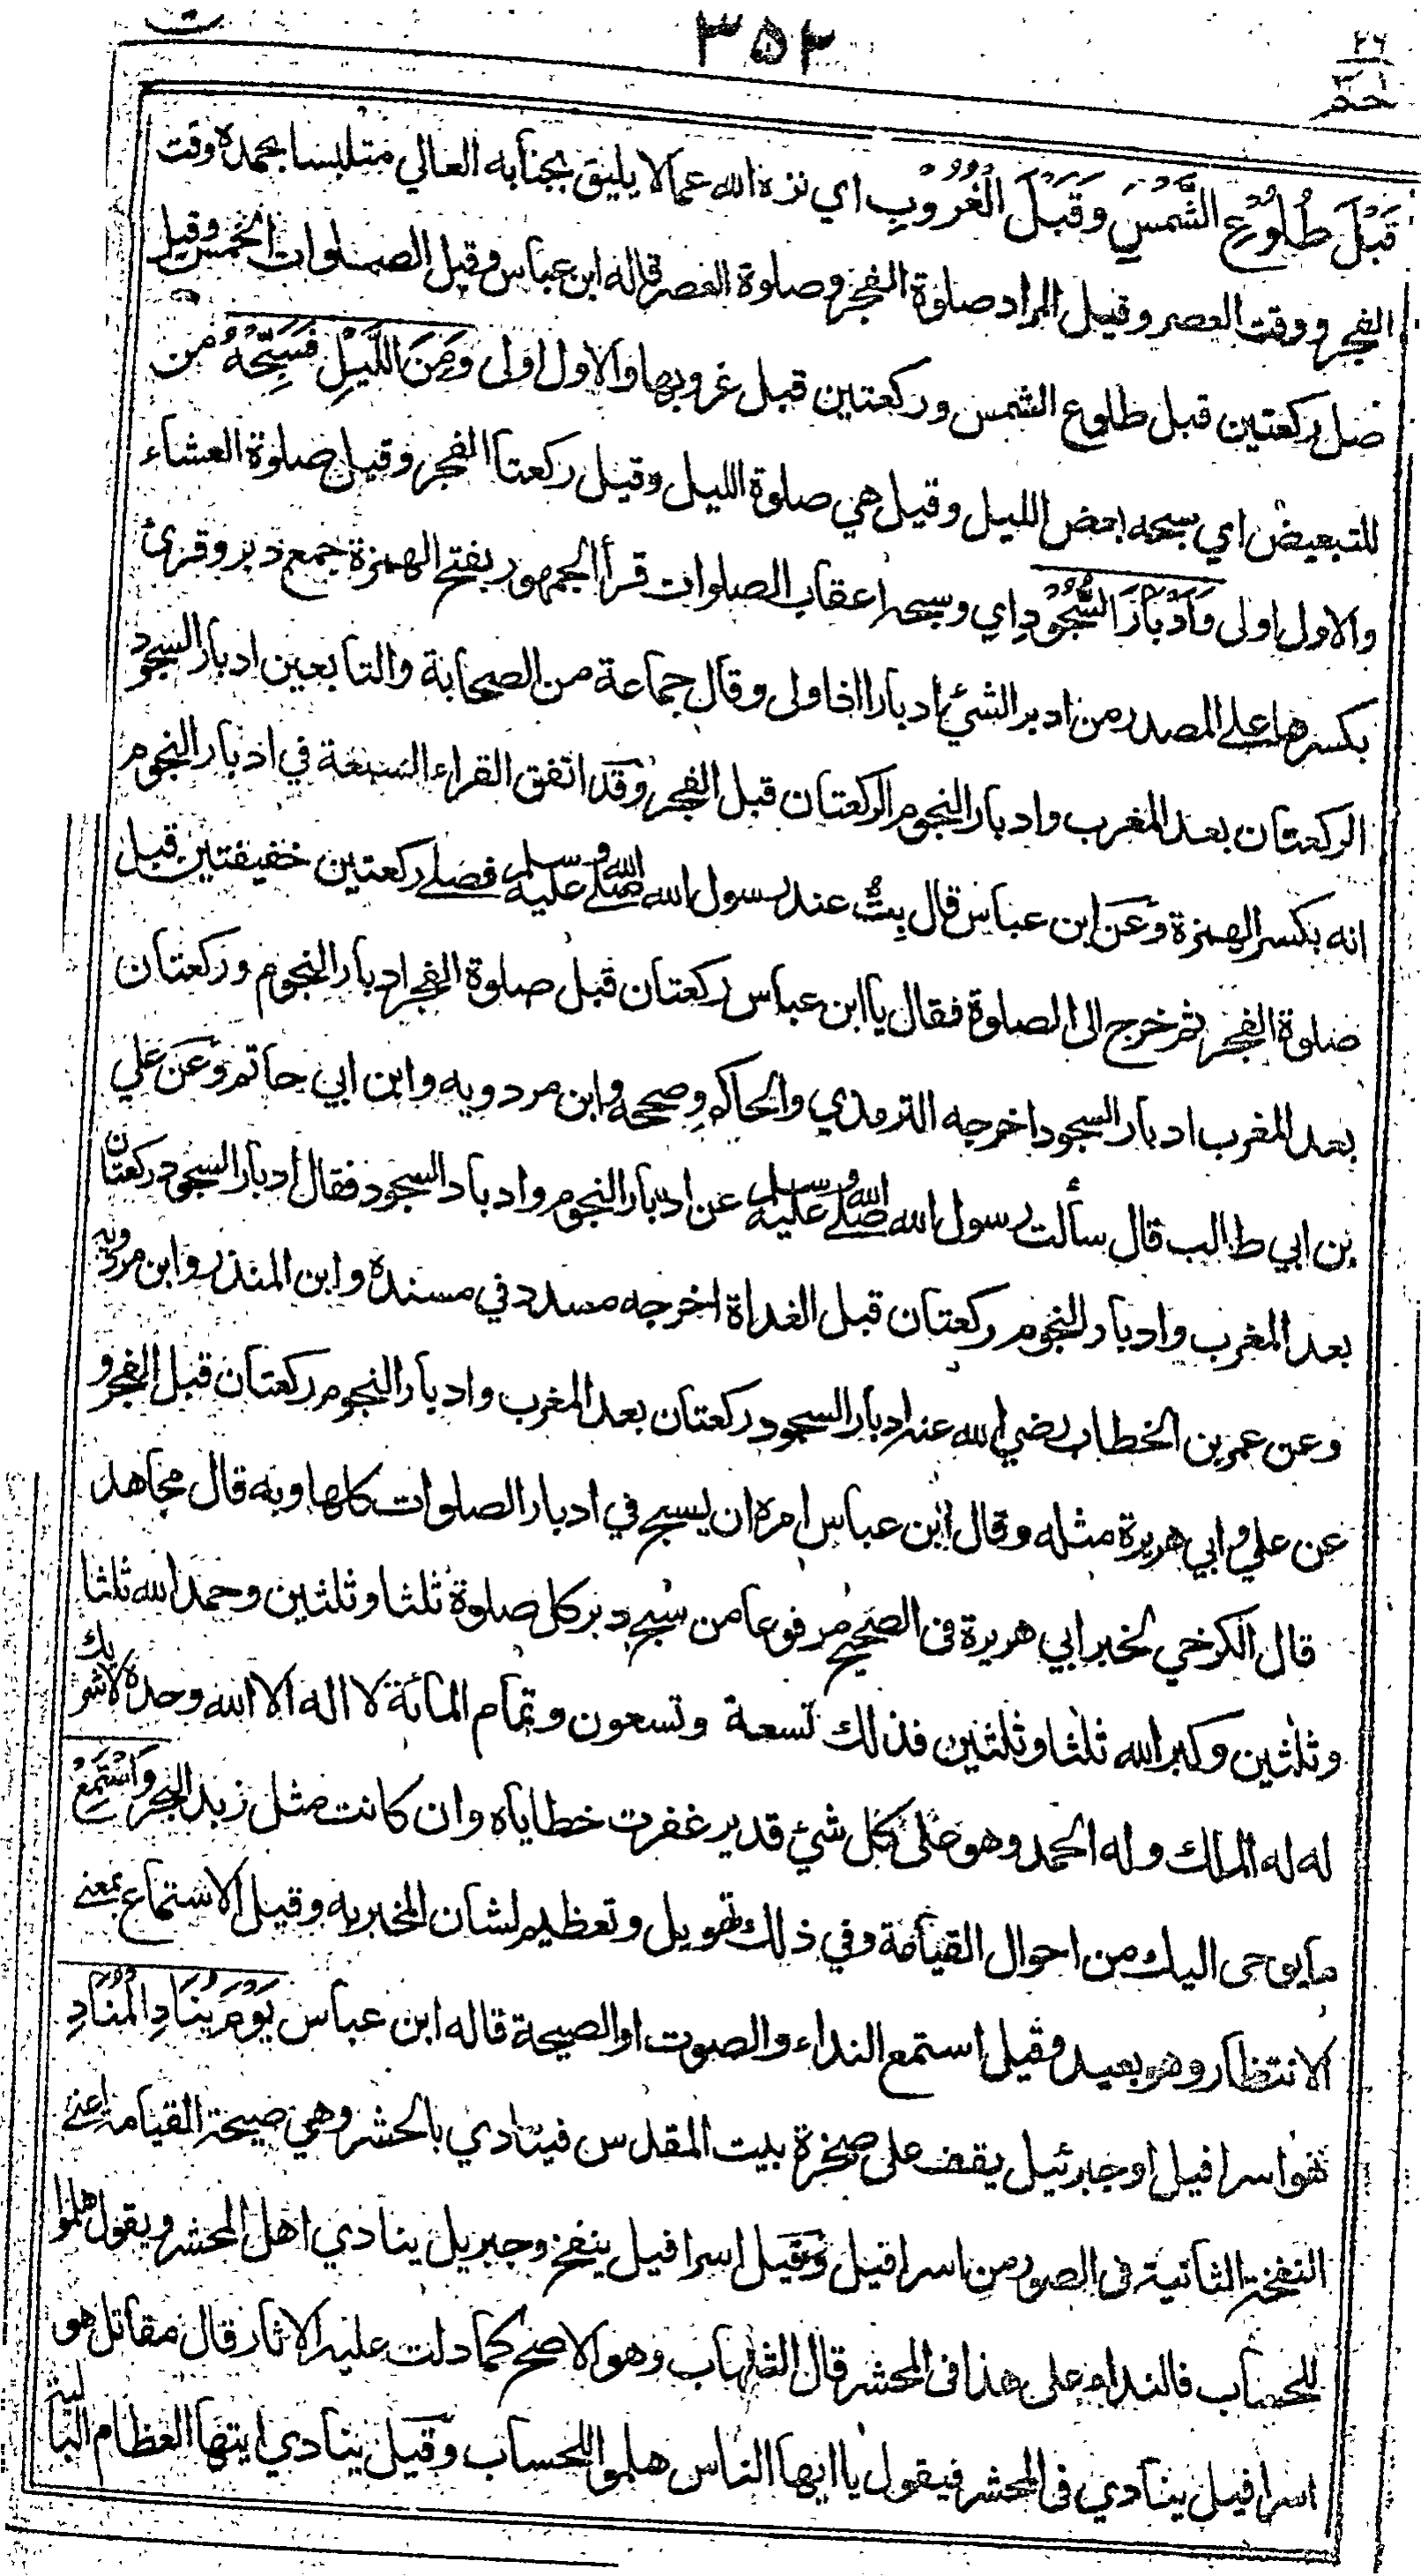 ت ٣٥٢ ٢٦
حم
قَبْلَ طُلُوْعِ الشَّمْسِ وَقَبْلَ الْغُرُوْبِ اي نزه الله عما لا يليق بجنابه العالي متلبسا بحمده وقت
الفجر ووقت العصر وقيل المراد صلوة الفجر وصلوة العصر قاله ابن عباس وقيل الصلوات الخمس وقيل
صل ركعتين قبل طلوع الشمس وركعتين قبل غروبها والاول اولى وَمِنَ اللَّيْلِ فَسَبِّحْهُ من
للتبعيض اي سبحه بعض الليل وقيل هي صلوة الليل وقيل ركعتا الفجر وقيل صلوة العشاء
والاول اولى وَاَدْبَارَ السُّجُوْدِ اي وسبحه اعقاب الصلوات قرأ الجمهور بفتح الهمزة جمع دبر وقرئ
بكسرها على المصدر من ادبر الشيء ادبارا اذا ولى وقال جماعة من الصحابة والتابعين ادبار السجود
الركعتان بعد المغرب وادبار النجوم الركعتان قبل الفجر وقد اتفق القراء السبعة في ادبار النجوم
انه بكسر الهمزة وعن ابن عباس قال بِتُّ عند رسول الله صلى الله عليه وسلم فصلى ركعتين خفيفتين قبل
صلوة الفجر ثم خرج الى الصلوة فقال يا ابن عباس ركعتان قبل صلوة الفجر ادبار النجوم وركعتان
بعد المغرب ادبار السجود اخرجه الترمذي والحاكم وصححه وابن مردويه وابن ابي حاتم وعن علي
بن ابي طالب قال سألت رسول الله صلى الله عليه وسلم عن ادبار النجوم وادبار السجود فقال ادبار السجود ركعتان
بعد المغرب وادبار النجوم ركعتان قبل الغداة اخرجه مسدد في مسنده وابن المنذر وابن مردويه
وعن عمر بن الخطاب رضي الله عنه ادبار السجود ركعتان بعد المغرب وادبار النجوم ركعتان قبل الفجر و
عن علي وابي هريرة مثله وقال ابن عباس امره ان يسبح في ادبار الصلوات كلها وبه قال مجاهد
قال الكرخي لخبر ابي هريرة في الصحيح مرفوعا من سبح دبر كل صلوة ثلثا وثلثين وحمد الله ثلثا
وثلثين وكبر الله ثلثا وثلثين فذلك تسعة وتسعون وتمام المائة لا اله الا الله وحده لا شريك
له له الملك وله الحمد وهو على كل شيء قدير غفرت خطاياه وان كانت مثل زبد البحر وَاسْتَمِعْ
ما يوحى اليك من احوال القيامة وفي ذلك تهويل وتعظيم لشان المخبر به وقيل الاستماع بمعنى
الانتظار وهو بعيد وقيل استمع النداء والصوت او الصيحة قاله ابن عباس يَوْمَ يُنَادِ الْمُنَادِ
هو اسرافيل او جبرئيل يقف على صخرة بيت المقدس فينادي بالحشر وهي صيحة القيامة اعني
النفخة الثانية في الصور من اسرافيل وقيل اسرافيل ينفخ وجبريل ينادي اهل المحشر ويقول هلموا
للحساب فالنداء على هذا في المحشر قال الشهاب وهو الاصح كما دلت عليه الاثار قال مقاتل هو
اسرافيل ينادي في المحشر فيقول يا ايها الناس هلموا للحساب وقيل ينادي ايتها العظام البالية